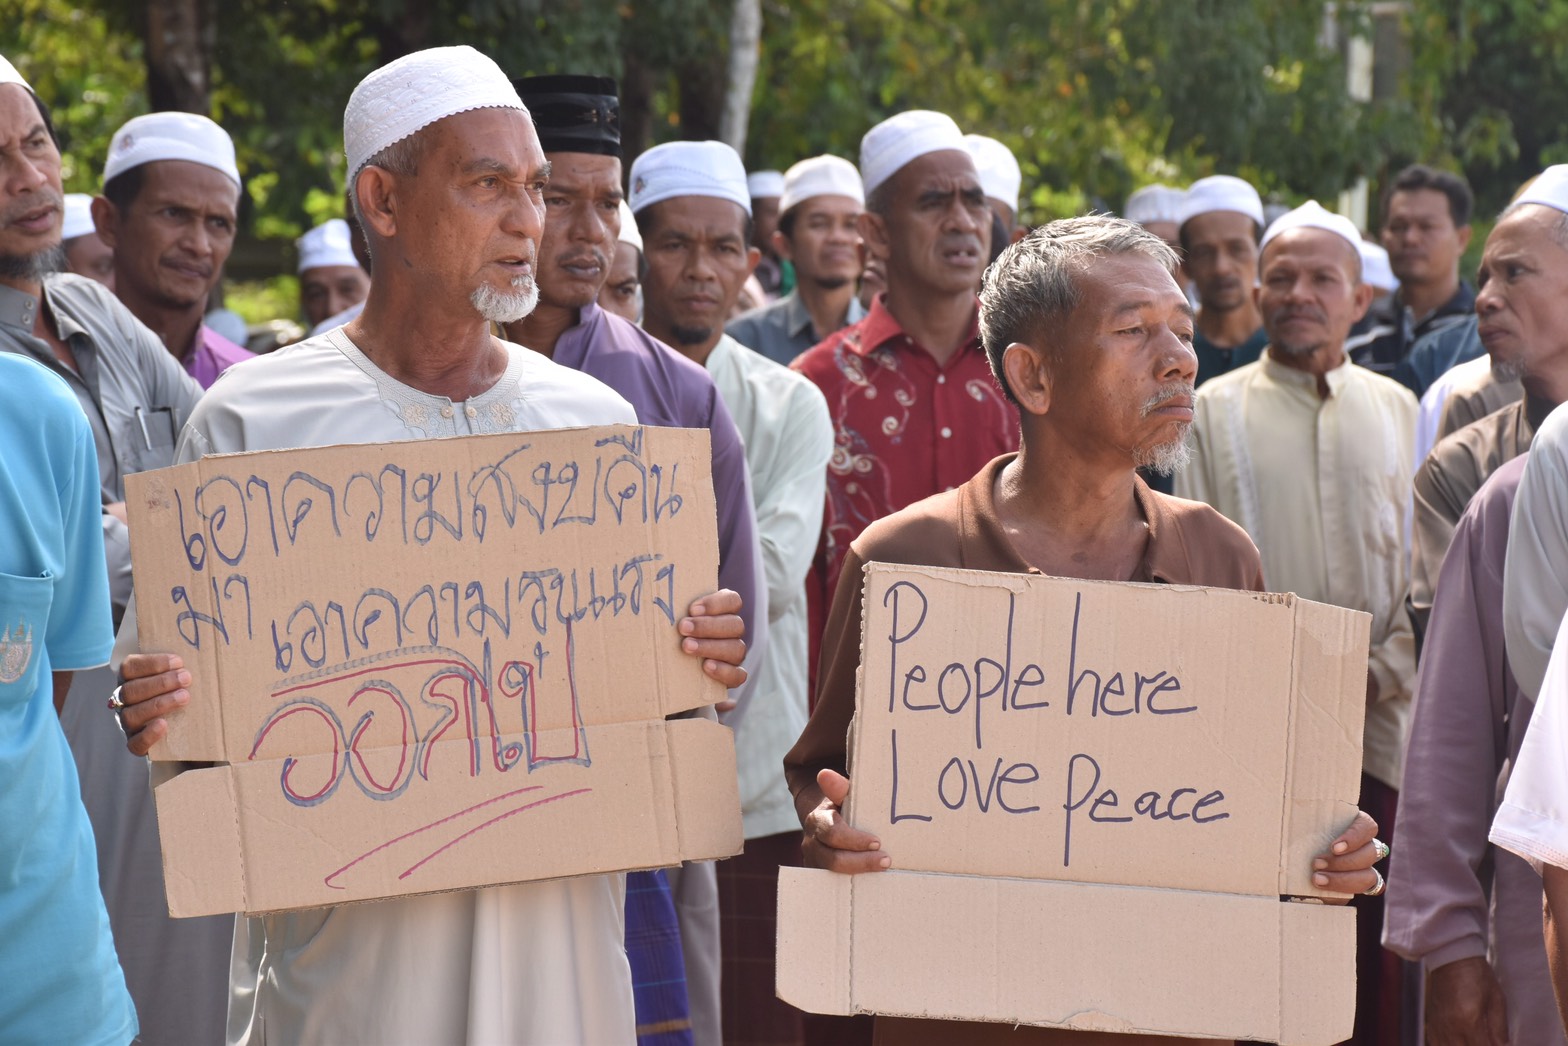 เอาความสงบคืน
มา เอาความรุนแรง
ออกไป
People here
Love peace